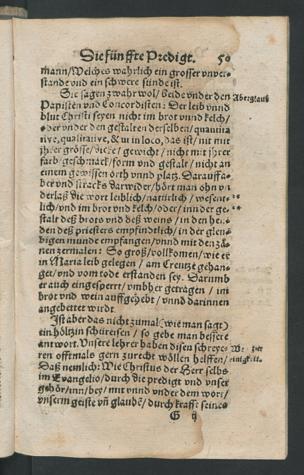 Die fünffte Predigt. 50
mann/Welches wahrlich ein grosser vnver-
stande vnd ein schwere sünde ist.
Sie sagen zwahr wol/ beide vnder den
Papisten vnd Concordisten: Der leib vnnd
blut Christi seyen nicht im brot vnnd kelch/
oder vnder den gestalten derselben/ quantita
tiue, qualitatiue, & ut in loco, das ist/ nit mit
jhrer grösse/ dicke/ gewicht/ nicht mit jhrer
farb/ geschmack/ form vnd gestalt/ nicht an
einem gewissen orth vnnd platz. Darauff a-
ber vnd stracks darwider/ hört man ohn vn
derlaß die wort leiblich/ natürlich/ wesent-
lich/ vnd im brot vnd kelch/ oder/ inn der ge-
stalt deß brots vnd deß weins/ in den hen-
den deß priesters empfindtlich/ in der gleu-
bigen munde empfangen/ vnnd mit den zä-
nen zermalen: So groß/ vollkomen/ wie er
in Maria leib gelegen/ am Creutze gehan-
get/ vnd vom tode erstanden sey. Darumb
er auch eingesperrt/ vmbher getragen/ im
brot vnd wein auffgehebt/ vnnd darinnen
angebettet wurdt.
Ist aber das nicht zumal (wie man sagt)
ein höltzin schüreisen/ so gebe man bessere
antwort. Vnsere lehrer haben disen schreye-
ren offtmals gern zurecht wöllen helffen/
Daß nemlich: Wie Christus der Herr selbs
im Evangelio/ durch die predigt vnd vnser
gehör/ inn/ bey/ mit vnnd vnder dem wort/
vnserm geiste vñ glaubē/ durch krafft seines
G ij